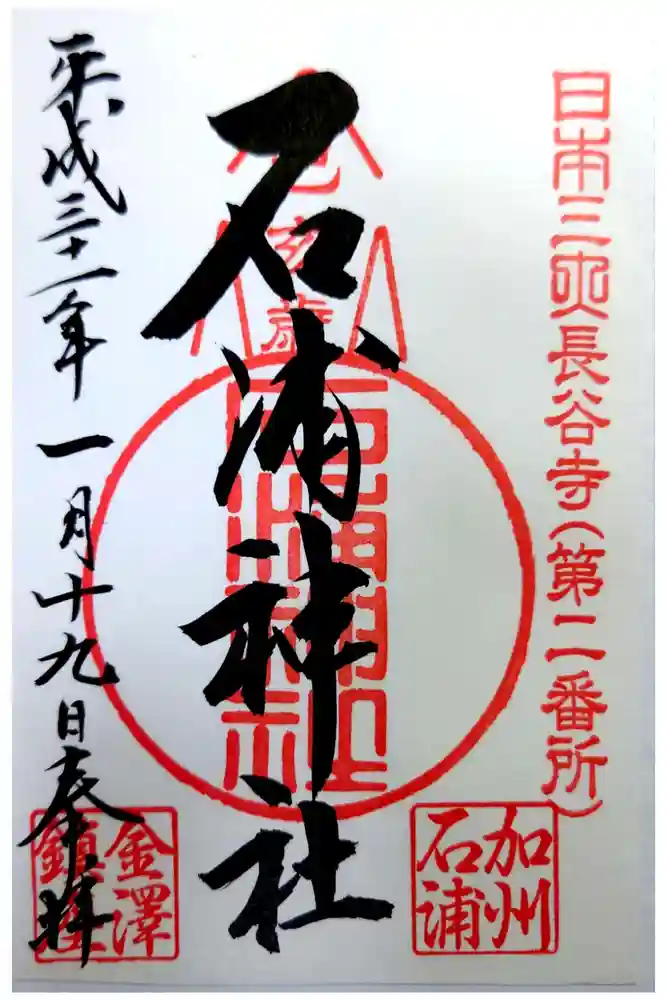 日本三所長谷寺(第二番所)
加州
石浦
石浦神社
石浦神社
金澤
平成三十一年一月十九日奉拝